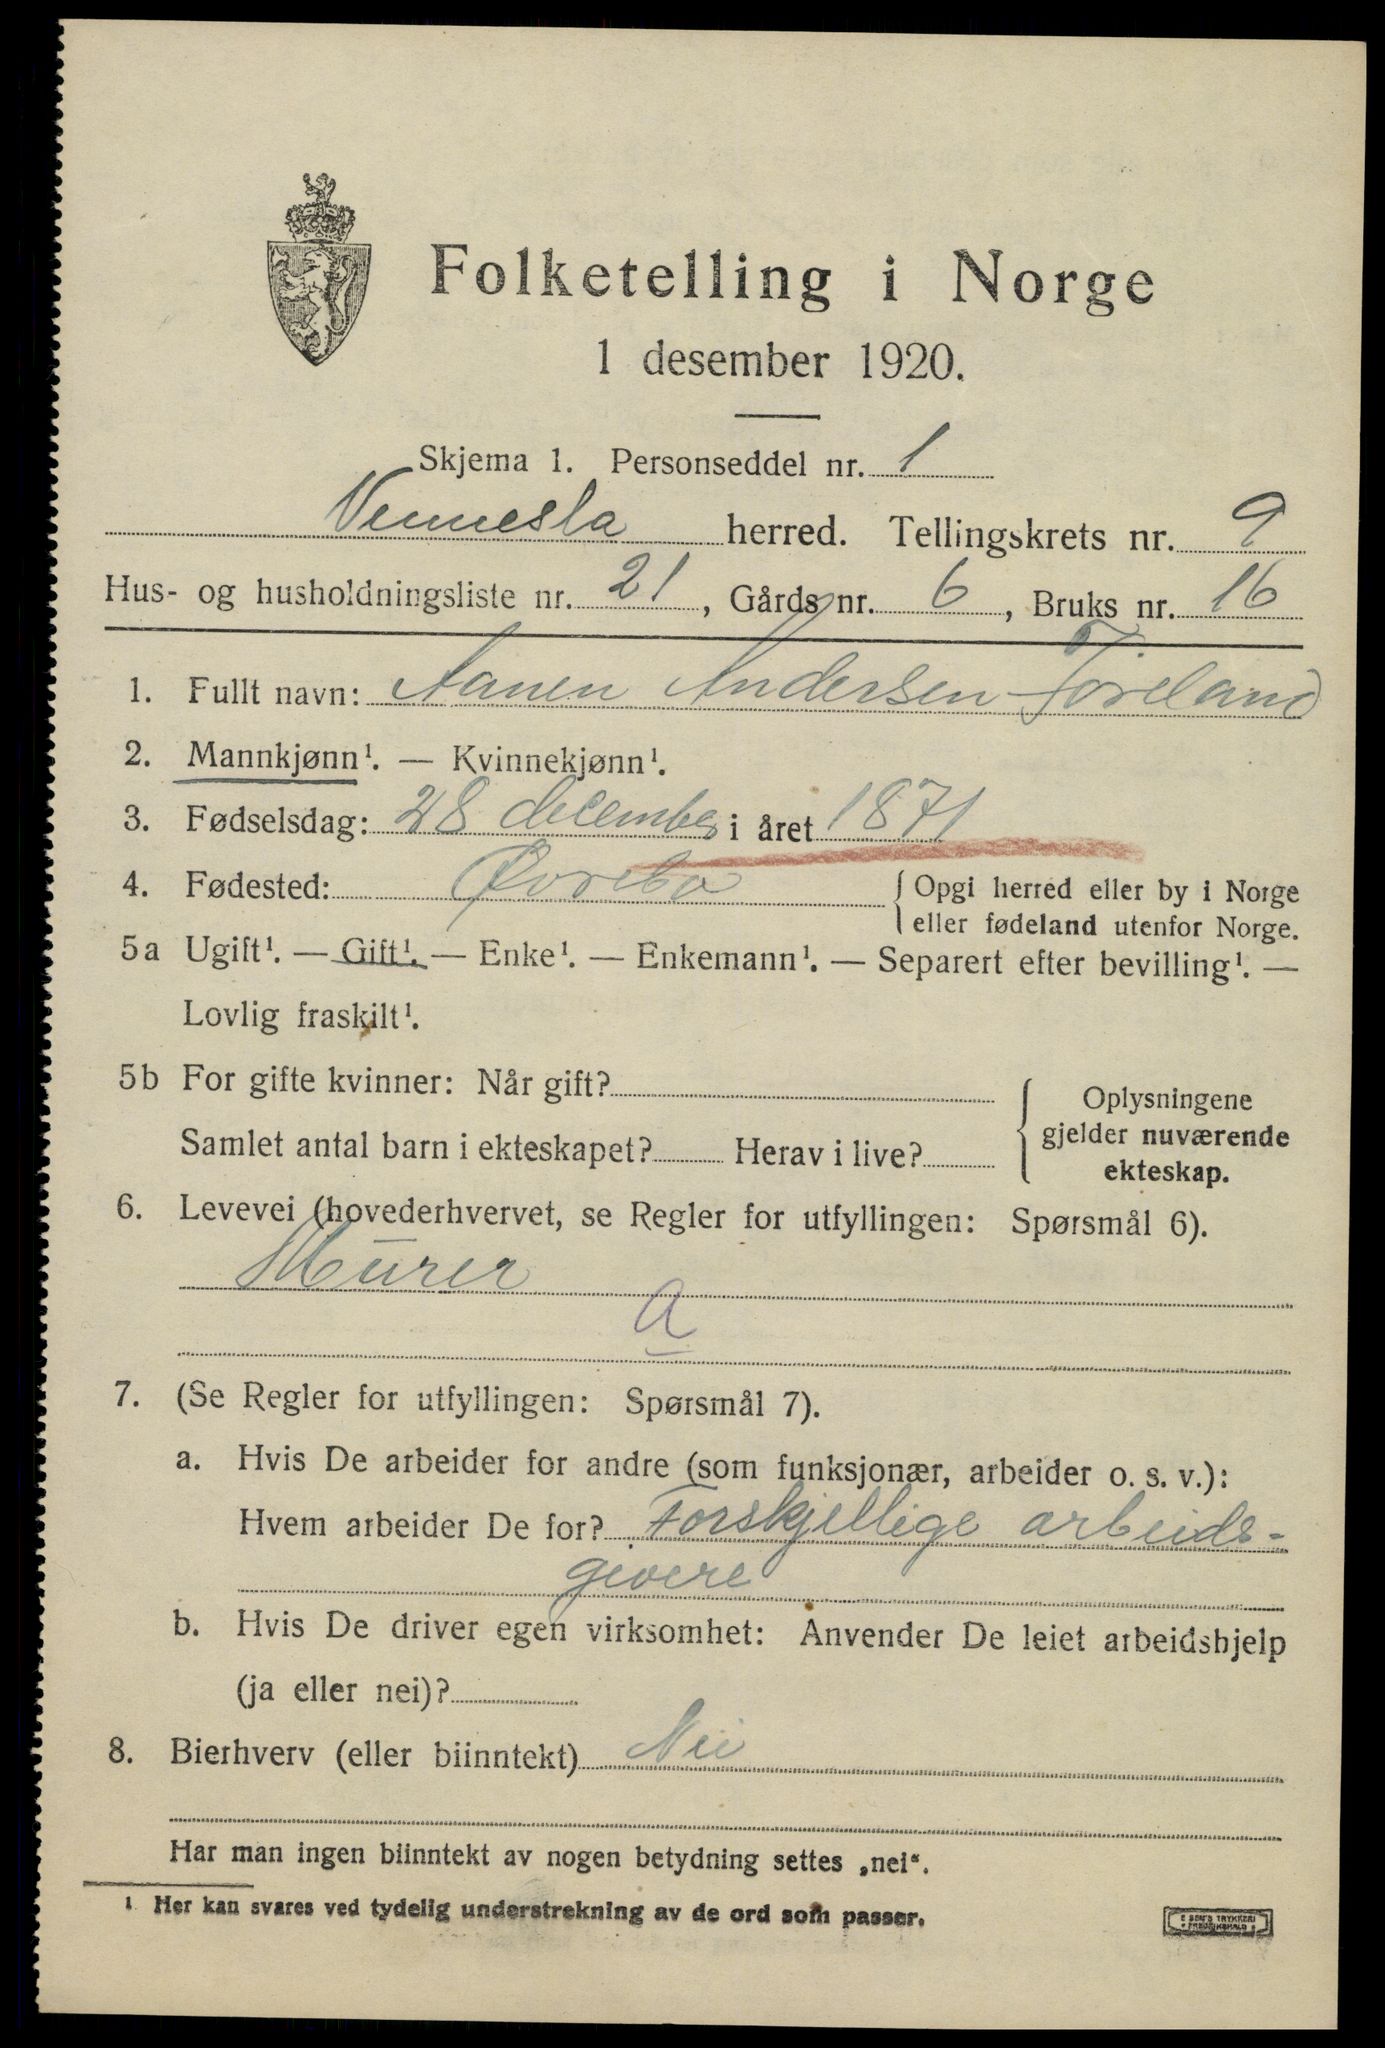 Folketelling i Norge
1 desember 1920.
Skjema 1. Personseddel nr. 1
Vennesla herred. Tellingskrets nr. 9
Hus- og husholdningsliste nr. 21, Gårds nr. 6, Bruks nr. 16
1. Fullt navn: Aanen Andersen Föreland
2. Mannkjønn¹. — Kvinnekjønn¹.
3. Fødselsdag: 28 december i året 1871
4. Fødested: Øvrebø { Opgi herred eller by i Norge
eller fødeland utenfor Norge.
5a Ugift¹. — Gift¹. — Enke¹. — Enkemann¹. — Separert efter bevilling¹. —
Lovlig fraskilt¹.
5b For gifte kvinner: Når gift?
Samlet antal barn i ekteskapet? Herav i live?
{ Oplysningene
gjelder nuværende
ekteskap.
6. Levevei (hovederhvervet, se Regler for utfyllingen: Spørsmål 6).
Murer
a
7. (Se Regler for utfyllingen: Spørsmål 7).
a. Hvis De arbeider for andre (som funksjonær, arbeider o. s. v.):
Hvem arbeider De for? Forskjellige arbeids-
givere
b. Hvis De driver egen virksomhet: Anvender De leiet arbeidshjelp
(ja eller nei)?
8. Bierhverv (eller biinntekt) Nei
Har man ingen biinntekt av nogen betydning settes „nei“.
1 Her kan svares ved tydelig understrekning av de ord som passer.